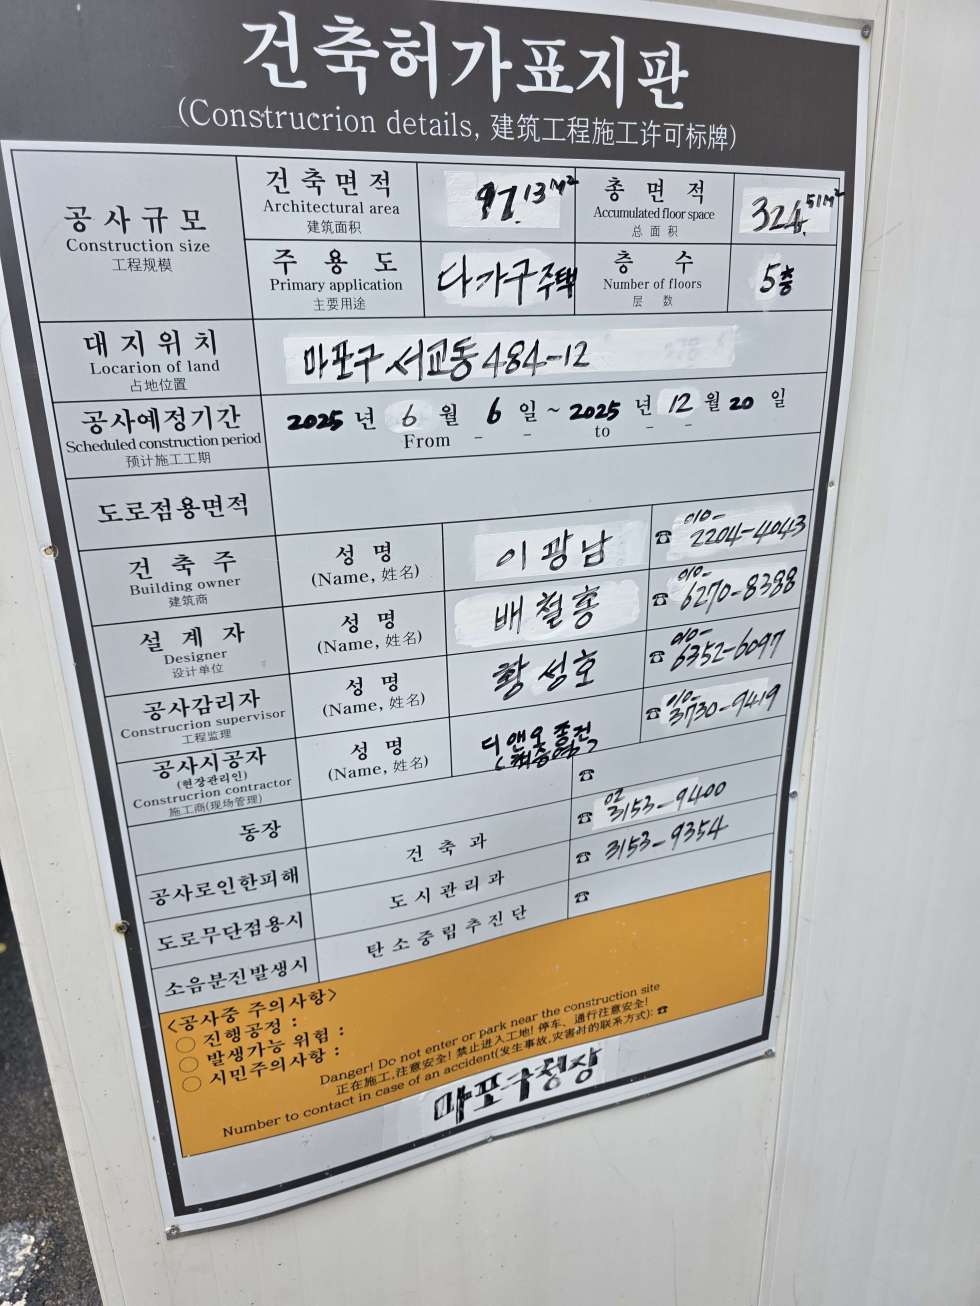 건축허가표지판
(Construcrion details, 建筑工程施工许可标牌)
공사규모
Construction size
工程规模
건축면적
Architectural area
建筑面积
97.13M²
총면적
Accumulated floor space
总面积
324.51M²
주용도
Primary application
主要用途
다가구주택
층수
Number of floors
层数
5층
대지위치
Locarion of land
占地位置
마포구 서교동 484-12
공사예정기간
Scheduled construction period
预计施工工期
2025년 6월 6일 ~ 2025년 12월 20일
From - - to - -
도로점용면적
건축주
Building owner
建筑商
성명
(Name, 姓名)
이광남
☎ 010-2204-4043
설계자
Designer
设计单位
성명
(Name, 姓名)
배철홍
☎ 010-6270-8388
공사감리자
Construcrion supervisor
工程监理
성명
(Name, 姓名)
황성호
☎ 010-6352-6097
공사시공자
(현장관리인)
Construcrion contractor
施工商(现场管理)
성명
(Name, 姓名)
디앤오
☎ 010-3730-9419
동장
☎
공사로인한피해
건축과
☎ 02 3153-9400
도로무단점용시
도시관리과
☎ 3153-9354
소음분진발생시
탄소중립추진단
☎
<공사중 주의사항>
○ 진행공정 :
○ 발생가능 위험 :
○ 시민주의사항 :
Danger! Do not enter or park near the construction site
正在施工,注意安全! 禁止进入工地! 停车、通行注意安全!
Number to contact in case of an accident(发生事故,灾害时的联系方式): ☎
마포구청장